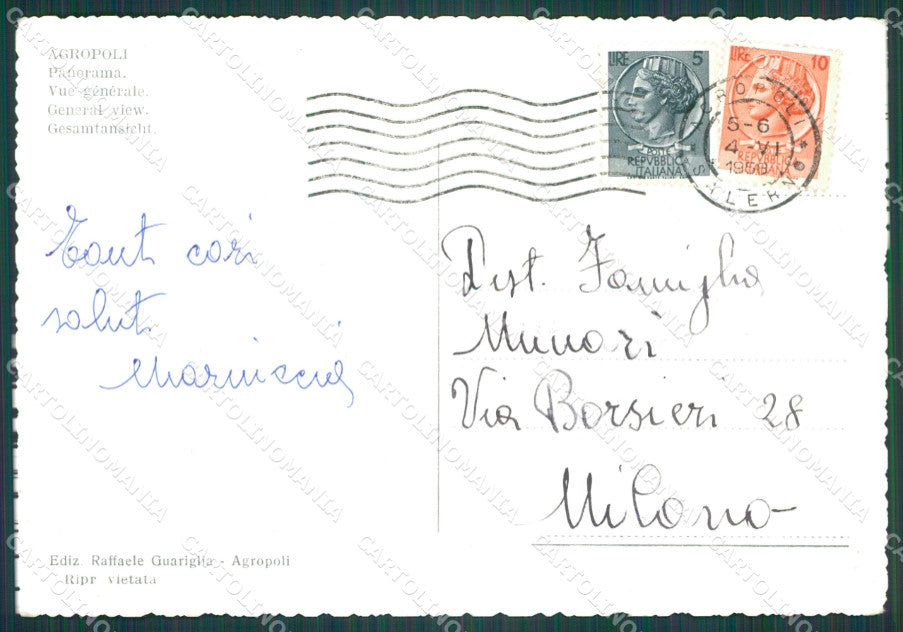 AGROPOLI
Panorama.
Vue générale.
General view.
Gesamtansicht.
LIRE 5
POSTE
REPVBBLICA
ITALIANA
LIRE 10
REPVBBLICA
ITALIANA
AGROPOLI
5-6
4-VI
SALERNO
Tanti cari
saluti
Dist. Famiglia
Munari
Via Borsieri 28
Milano
Ediz. Raffaele Guariglia - Agropoli
Ripr vietata
CARTOLINOMANIA